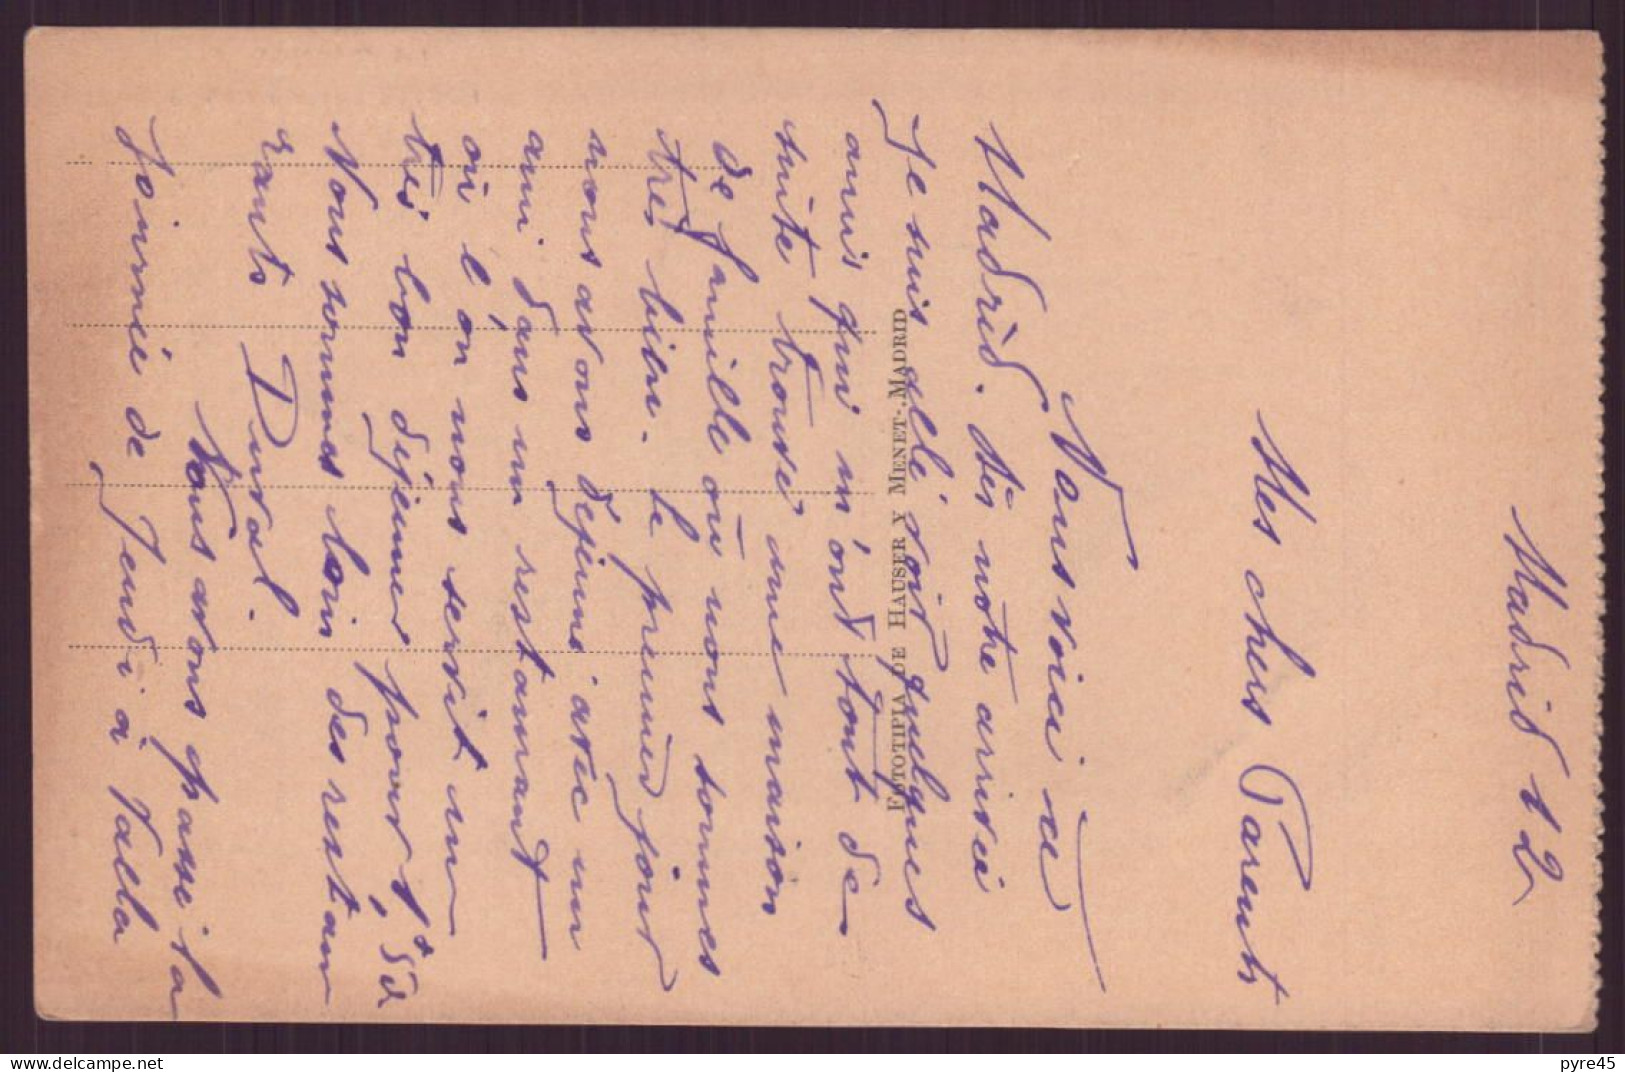 Madrid 12
Mes chers Parents
Nous voici à
Madrid. dès notre arrivée
Je suis allé voir quelques
amis qui m'ont tout de
suite trouvé une maison
de famille où nous sommes
très bien. le premier jour
nous avons déjeuné avec un
ami dans un restaurant
où l'on nous servit un
très bon déjeuner pour 1,50
Nous sommes loin des restau
rants Duval.
Nous avons passé la
Joirnée de Jeudi à Valla
FOTOTIPIA DE HAUSER Y MENET.-MADRID
pyre45